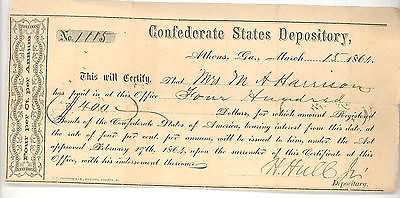 Confederate States Depository,
No. 1115
Athens, Ga., March 15 1864.
This will Certify, That Mrs M A Harrison
has paid in at this Office Four Hundred
$400
Dollars, for which amount Registered
Bonds of the Confederate States of America, bearing interest from this date, at
the rate of four per cent. per annum, will be issued to him, under the Act
approved February 17th, 1864, upon the surrender of this Certificate at this
Office, with his indorsement thereon.
H. Hull Jr.
Depositary.
Four per Ct. per Annum